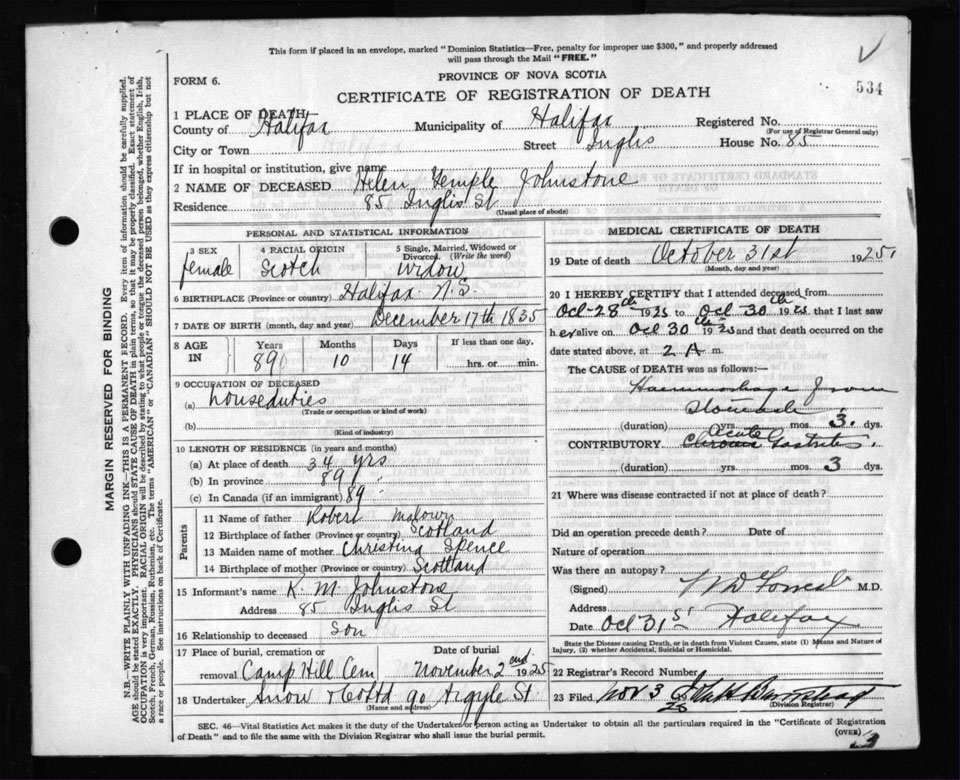 This form if placed in an envelope, marked "Dominion Statistics—Free, penalty for improper use $300," and properly addressed
will pass through the Mail "FREE."
FORM 6.
PROVINCE OF NOVA SCOTIA
534
CERTIFICATE OF REGISTRATION OF DEATH
1 PLACE OF DEATH
County of Halifax Municipality of Halifax Registered No.
(For use of Registrar General only)
City or Town Street Inglis House No. 85
If in hospital or institution, give name
2 NAME OF DECEASED Helen Temple Johnstone
Residence 85 Inglis St
(Usual place of abode)
PERSONAL AND STATISTICAL INFORMATION
3 SEX 4 RACIAL ORIGIN 5 Single, Married, Widowed or
Divorced (Write the word)
female Scotch Widow
6 BIRTHPLACE (Province or country) Halifax N.S.
7 DATE OF BIRTH (month, day and year) December 17th 1835
8 AGE IN Years Months Days If less than one day,
89 10 14 hrs. or min.
9 OCCUPATION OF DECEASED
(a) houseduties
(Trade or occupation or kind of work)
(b)
(Kind of industry)
10 LENGTH OF RESIDENCE (in years and months)
(a) At place of death 34 yrs
(b) In province 89 "
(c) In Canada (if an immigrant) 89 "
Parents
11 Name of father Robert
12 Birthplace of father (Province or country) Scotland
13 Maiden name of mother Christina Spence
14 Birthplace of mother (Province or country) Scotland
15 Informant's name K. M. Johnstone
Address 85 Inglis St
16 Relationship to deceased Son
17 Place of burial, cremation or Date of burial
removal Camp Hill Cem November 2nd 1925
18 Undertaker Snow & Co Ltd 90 Argyle St
(Name and address)
MEDICAL CERTIFICATE OF DEATH
19 Date of death October 31st 1925
(Month, day and year)
20 I HEREBY CERTIFY that I attended deceased from
Oct 28th 1925 to Oct 30th 1925 that I last saw
her alive on Oct 30th 1925 and that death occurred on the
date stated above, at 2 A m.
The CAUSE of DEATH was as follows:—
Haemorrhage from
Stomach
(duration) yrs. mos. 3 dys.
Acute
CONTRIBUTORY Chronic Gastritis
(duration) yrs. mos. 3 dys.
21 Where was disease contracted if not at place of death?
Did an operation precede death? Date of
Nature of operation
Was there an autopsy?
(Signed) M.D.
Address Halifax
Date Oct 31st
State the Disease causing Death, or in death from Violent Causes, state (1) Means and Nature of
Injury, (2) whether Accidental, Suicidal or Homicidal.
22 Registrar's Record Number
23 Filed Nov 3
25
(Division Registrar)
SEC. 46—Vital Statistics Act makes it the duty of the Undertaker or person acting as Undertaker to obtain all the particulars required in the "Certificate of Registration
of Death" and to file the same with the Division Registrar who shall issue the burial permit.
(OVER)
MARGIN RESERVED FOR BINDING
N.B.—WRITE PLAINLY WITH UNFADING INK—THIS IS A PERMANENT RECORD. Every item of information should be carefully supplied.
AGE should be stated EXACTLY. PHYSICIANS should STATE CAUSE OF DEATH in plain terms, so that it may be properly classified. Exact statement of
OCCUPATION is very important. RACIAL ORIGIN will be described by stating to what people or tongue the deceased person belonged, whether English, Irish,
Scotch, French, German, Russian, Ruthenian, etc. The terms "AMERICAN" or "CANADIAN" SHOULD NOT BE USED as they express citizenship but not
a race or people. See instructions on back of Certificate.